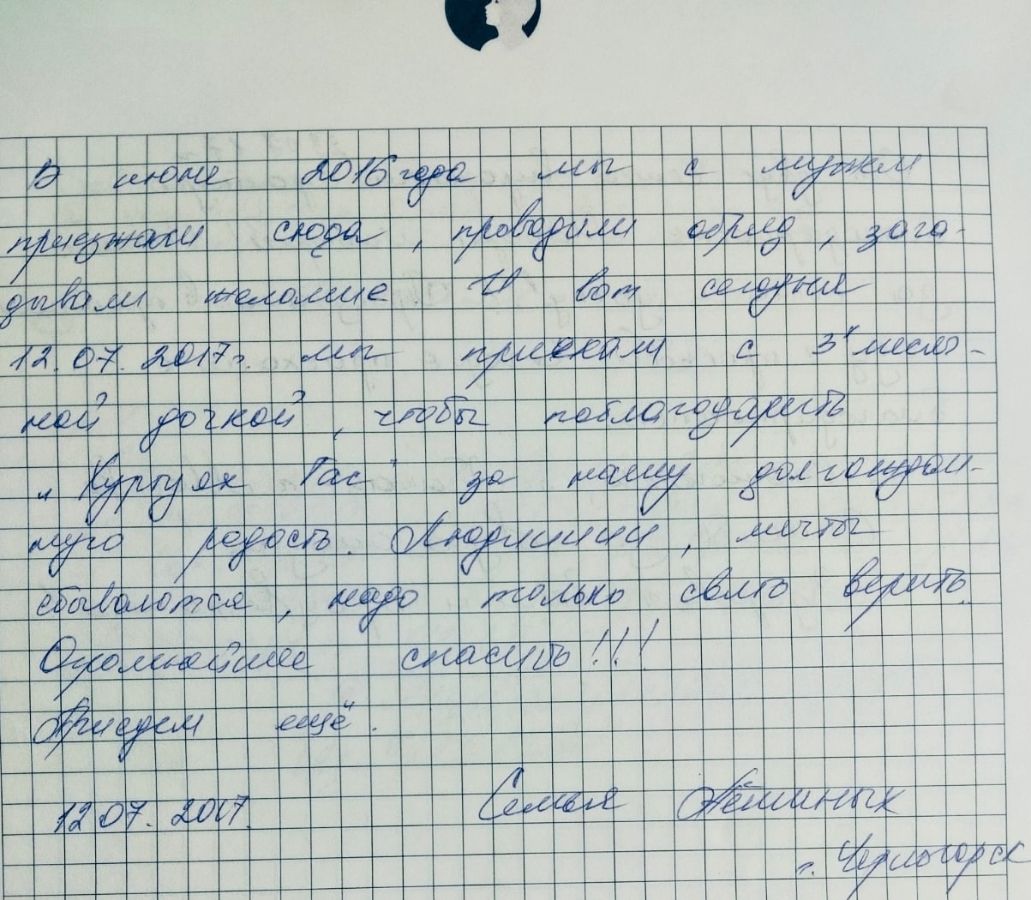 В июне 2016 года мы с мужем
приезжали сюда, проводили обряд, зага-
дывали желание. И вот сегодня
12.07.2017г. мы приехали с 3х месяч-
ной дочкой, чтобы поблагодарить
„Хуртуях Тас" за нашу долгождан-
ную радость. мечты
сбываются, надо только свято верить.
Огромнейшее спасибо!!!
Приедем ещё.
12.07.2017. Семья
г. Черногорск